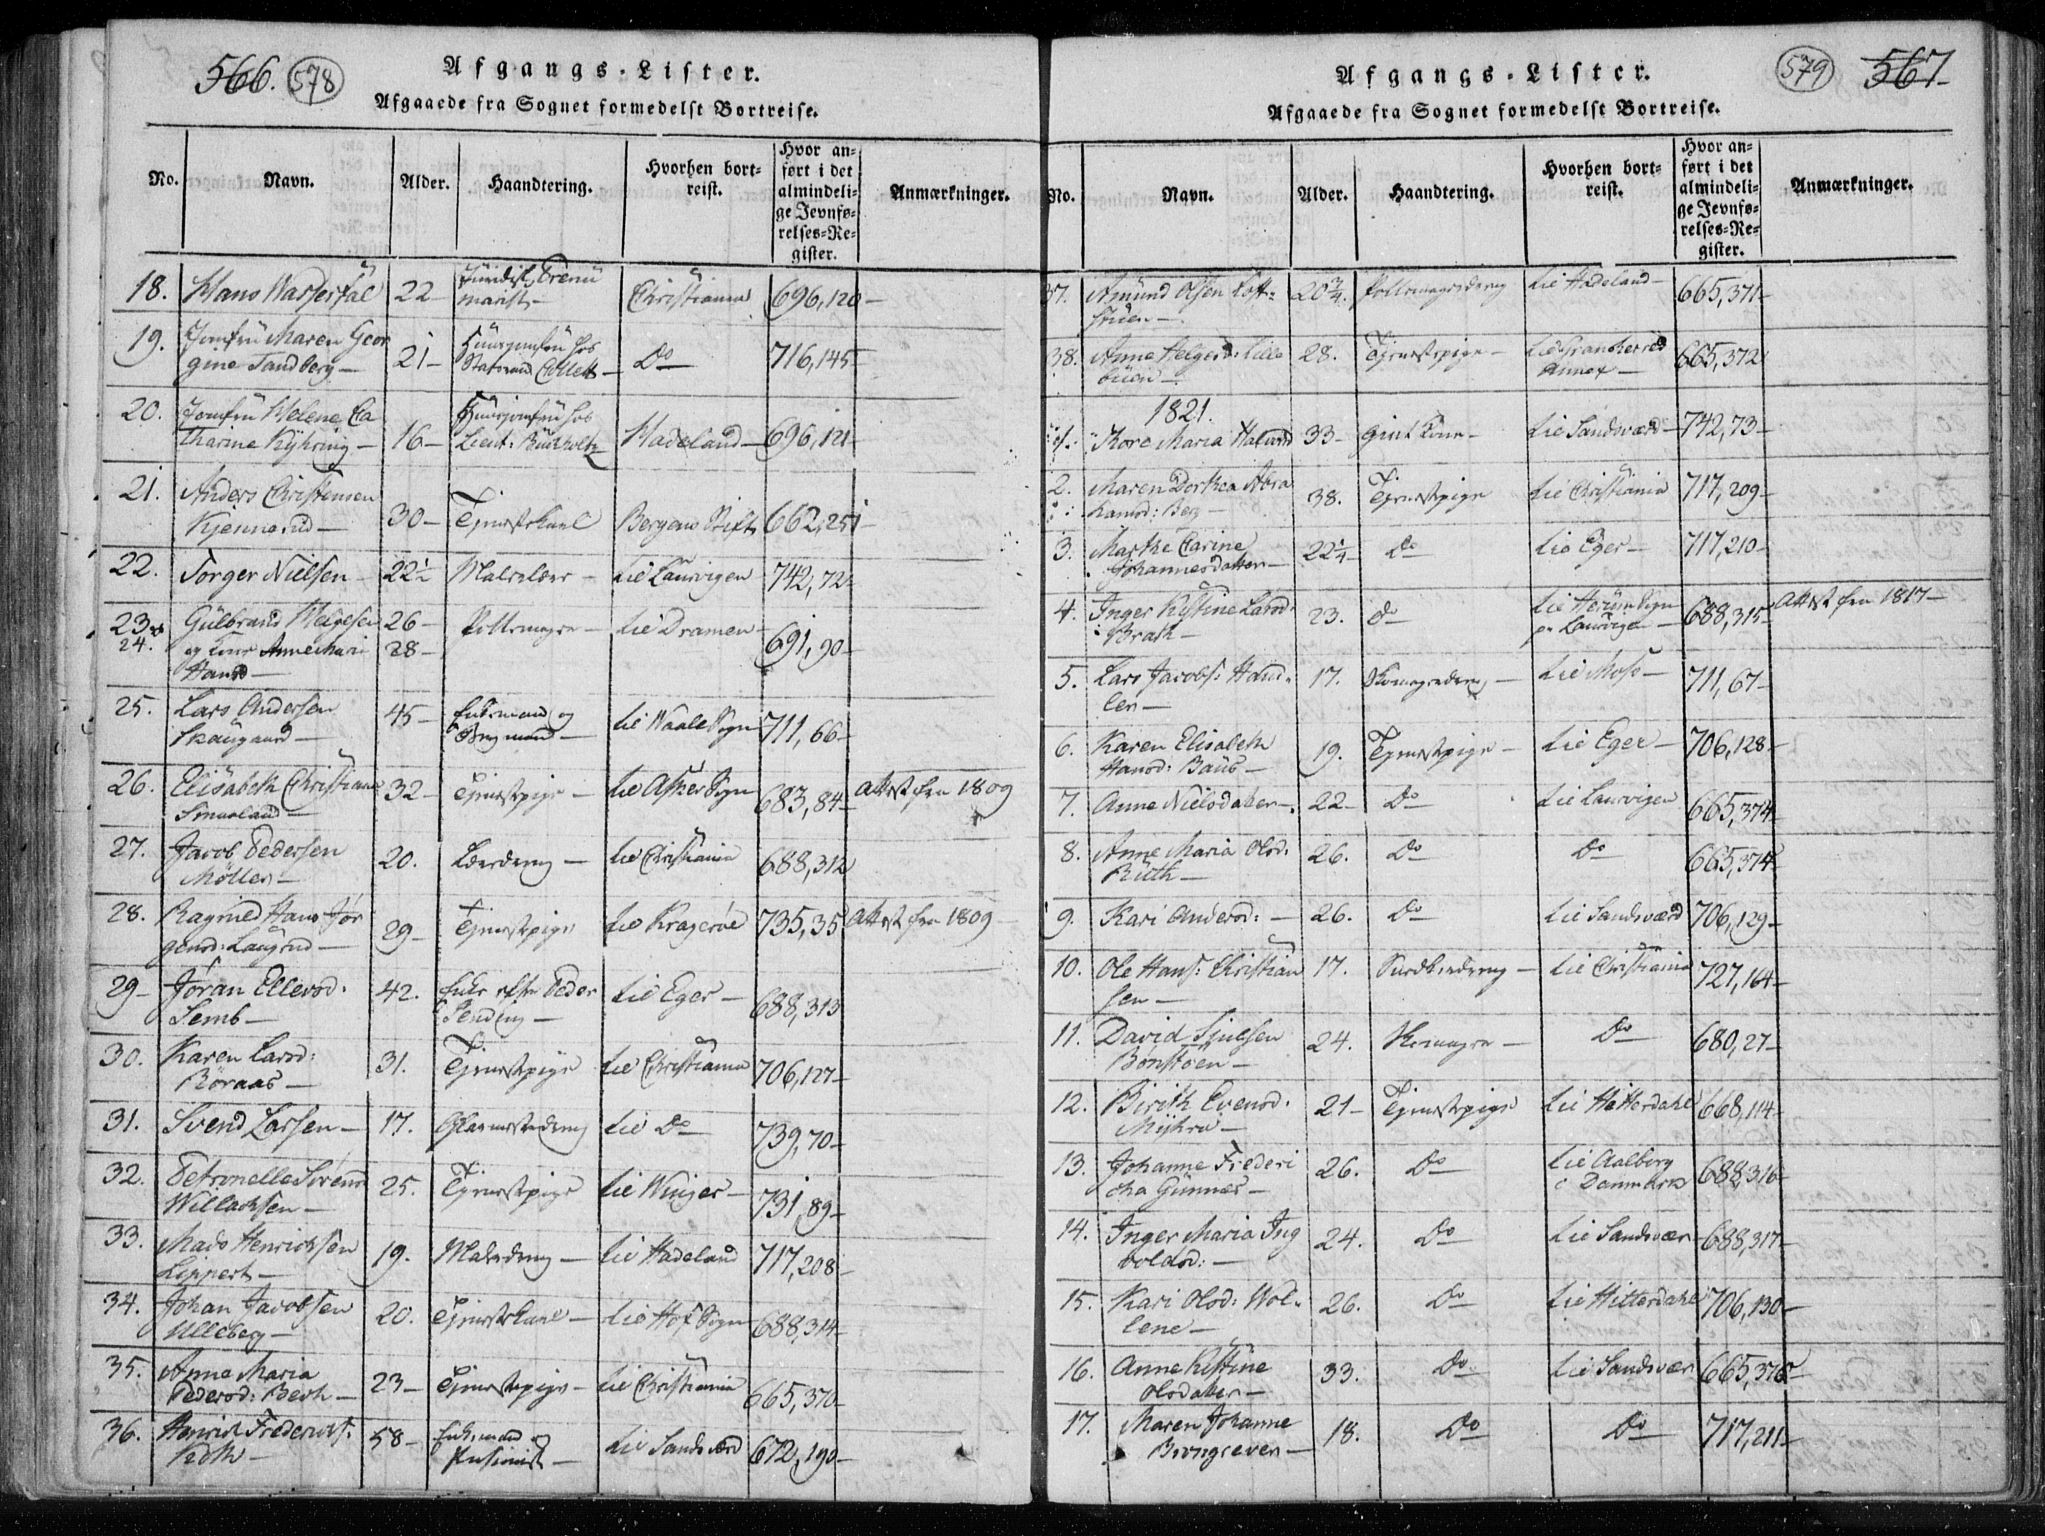 566. 578
Afgangs-Lister.
Afgaaede fra Sognet formedelst Bortreise.
No. Navn. Alder. Haandtering. Hvorhen bortreist. Hvor anført i det almindelige Jevnførelses-Register. Anmærkninger.
18. Hans 22 Christiania 696,120
19. Jomfru Maren Geor
gine Sandberg 21 Do 716,145
20. Jomfru Helene Ca
tharine 16 Hadeland 696,121
21. Anders Christensen
Kjennerud 30 Tjenestekarl Bergens Stift 662,251
22. Torger Nielsen 22½ til Laurvigen 742,72
23 Gulbrand Helgesen 26
24. og Kone Anne Mari 28 Pottemager til Dramen 691,90
Hansd
25. Lars Andersen
Skaugaard 45 Enkemand og
Bergmand til Waale Sogn 711,66
26. Elisabeth Christians
Smaaland 32 Tjenestepige til Asker Sogn 683,84 Attest fra 1809
27. Jacob Pedersen
Möller 20. til Christiania 688,312
28. Ragnild Hans Jör
gensd: 29 Tjenestepige til Kragerøe 735,35 Attest fra 1809
29 Jöran Ellevsd:
Semb 42. Enke efter Peder
til Eger 688,313
30. Karen Larsd:
Röraas 31. Tjenestepige til Christiania 706,127
31. Svend Larsen 17. til Do 739,70
32. Petronelle Sørens
Willachsen 25. Tjenestepige til Winger 731,89
33. Mads Henrichsen
Lippert 19. Malerdreng til Hadeland 717,208
34. Johan Jacobsen
Ulleberg 20. Tjenestekarl til Hof Sogn 688,314
35. Anne Maria
Pedersd: Berh 23 Tjenestepige til Christiania 665,370
36. Henrich Frederichs:
Koth 58 Enkemand og
Pensionist til Sandsværd 672,190
579 567
Afgangs-Lister.
Afgaaede fra Sognet formedelst Bortreise.
No. Navn. Alder. Haandtering. Hvorhen bortreist. Hvor anført i det almindelige Jevnførelses-Register. Anmærkninger.
37. Amund Olsen Loft=
stuen 20¾ Pottemagerdreng til Hadeland 665,371
38. Anne Helgesd: Lille
buen 28. Tjenestepige til Gransherred
Annex 665,372
1821.
1. Kore Maria Halvord 33 gift Kone til Sandsværd 742,73
2. Maren Dorthea Abra
hamsd: Berg 38. Tjenestepige til Christiania 717,209
3. Marthe Carine
Johannesdatter 22¼ Do til Eger 717,210
4. Inger Kistine Larsd:
Brath 23. do
Laurvigen 688,315 Attest fra 1817
5. Lars Jacobs: 17. til Moss 711,67
6. Karen Elisabeth
Hansd: Baüs 19. Tjenestepige til Eger 706,128
7. Anne Nielsdatter 22 Do til Laurvigen 665,374
8. Anne Maria Olsd:
Ruth 26. Do Do 665,374
9. Kari Andersd: 26. Do til Sandsværd 706,129
10. Ole Hans: Christian
sen 17. til Christiania 727,164
11. David
24. Do 680,27
12. Birith Evensd:
21 Tjenestepige til Hitterdahl 668,114
13. Johanne Frederi
cha Gunnes 26. Do til Aalborg
i Danmark 688,316
14. Inger Maria Ing
voldsd: 24. Do til Sandsvær 688,317
15. Kari Olsd: Wol=
lene 26. Do til Hitterdahl 706,130
16. Anne Kistine
Olsdatter 33. Do til Sandsvær 665,376
17. Maren Johanne
18. Do Do 717,211